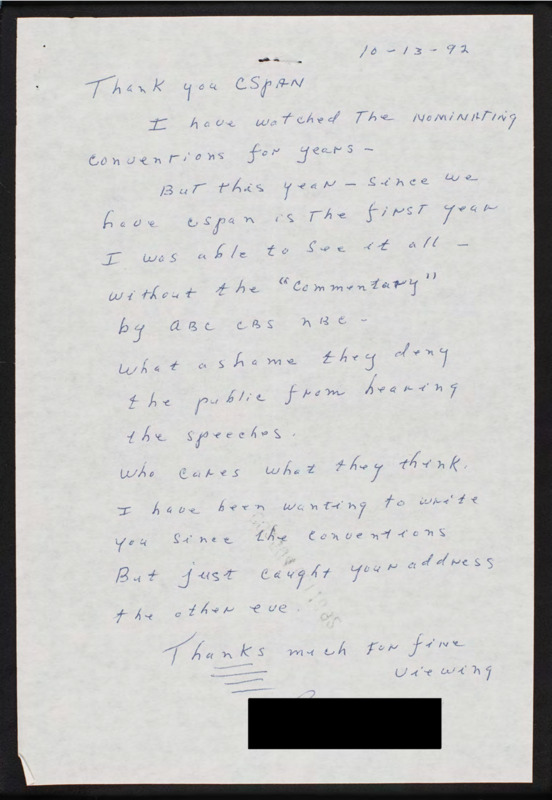 10-13-92
Thank you CSPAN
I have watched The NOMINATING
conventions for years -
But this year - since we
have cspan is The first year
I was able to see it all -
without the "commentary"
by ABC CBS NBC -
what a shame they deny
the public from hearing
the speeches.
Who cares what they think.
I have been wanting to write
you since the conventions
But just caught your address
the other eve.
Thanks much For fine
viewing